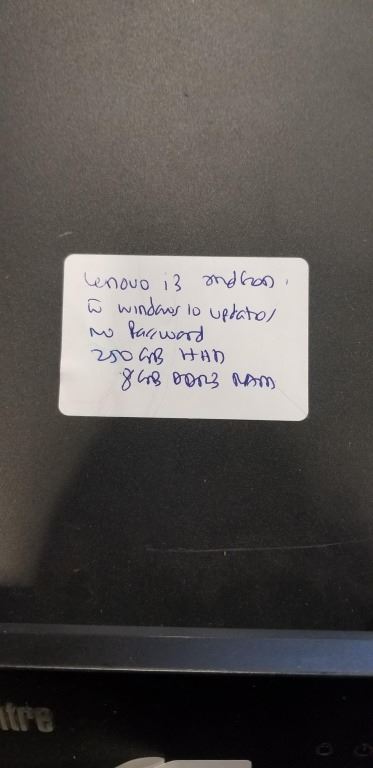 Lenovo i3 2nd Gen.
w windows 10 updates
no Password
250 GB HDD
8GB DDR3 RAM
ntre